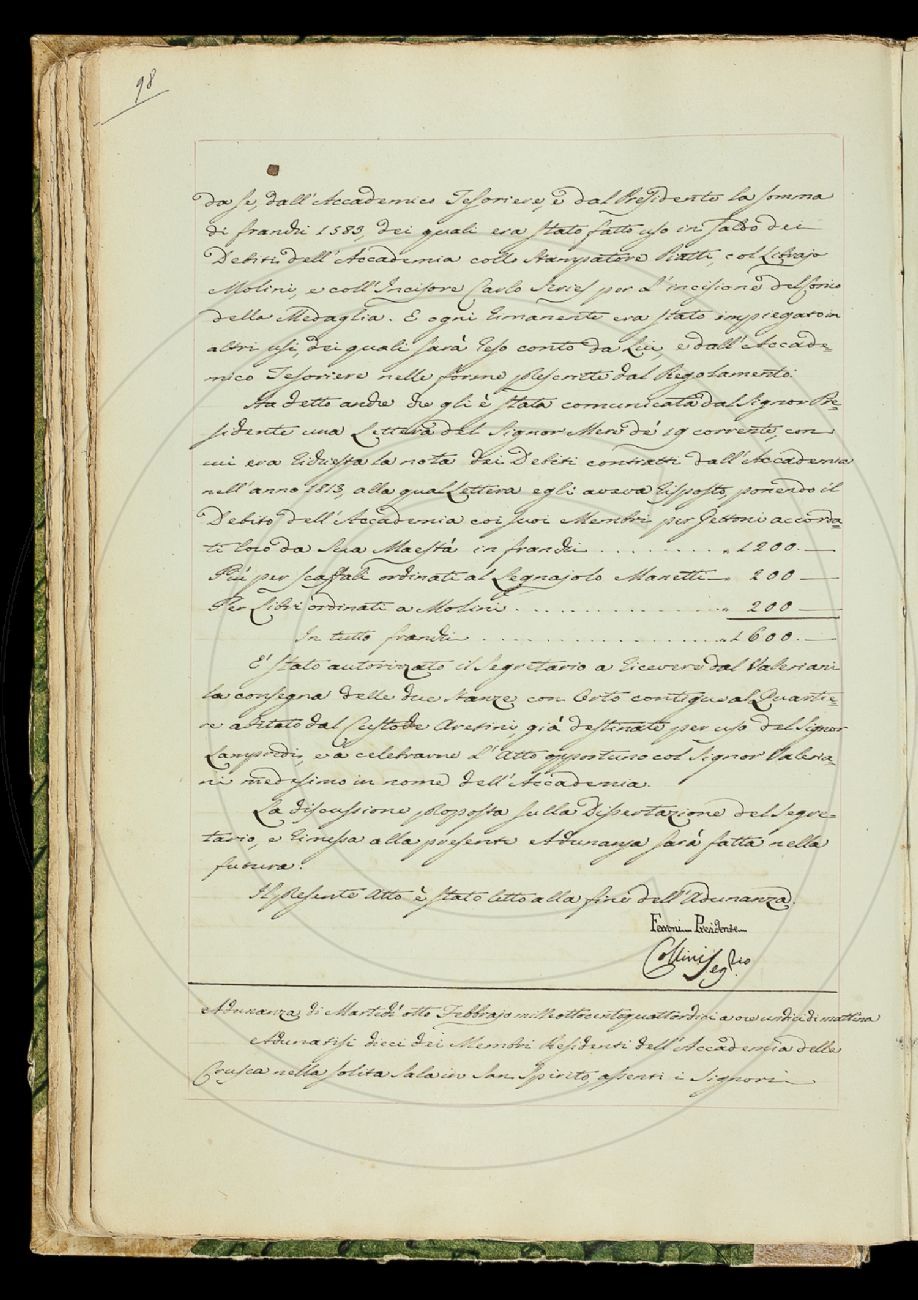 98
da se, dall'Accademico Tesoriere, e dal Presidente la somma
di franchi 1583, dei quali era stato fatto uso in saldo dei
Debiti dell'Accademia collo Stampatore Piatti, col Librajo
Molini, e coll'Incisore Carlo Siries per l'incisione del conio
della Medaglia. E ogni rimanente era stato impiegato in
altri usi, dei quali sarà reso conto da Lui e dall'Accade=
mico Tesoriere nelle forme prescritte dal Regolamento.
Ha detto anche che gli è stata comunicata dal Signor Pre=
sidente una Lettera del Signor Mere de' 19 corrente, con
cui era richiesta la nota dei Debiti contratti dall'Accademia
nell'anno 1813, alla qual Lettera egli aveva risposto, ponendo il
Debito dell'Accademia coi suoi Membri per Gettoni accorda=
ti loro da Sua Maestà in franchi . . . . . . . . . . „ 1200. —
Più per scaffali ordinati al Legnajolo Manetti „ 200 —
Per Libri ordinati a Molini . . . . . . . . . . . . „ 200 —
In tutto franchi . . . . . . . . . . . . . „ 1600. —
E' stato autorizzato il Segretario a ricevere dal Valeriani
la consegna delle due stanze con Orto contigue al Quartie=
re abitato dal Custode Aretini, già destinate per uso del Signor
Lampredi, e a celebrarne l'Atto opportuno col Signor Valeria=
ni medesimo in nome dell'Accademia.
La discussione proposta sulla Dissertazione del Segre=
tario, e rimessa alla presente Adunanza sarà fatta nella
futura.
Il presente Atto è stato letto alla fine dell'Adunanza.
Ferroni Presidente
Collini Seg.rio
Adunanza di Martedì otto Febbrajo mille ottocentoquattordici a ore undici di mattina
Adunatisi dieci dei Membri Residenti dell'Accademia della
Crusca nella solita Sala in San Spirito, assenti i Signori